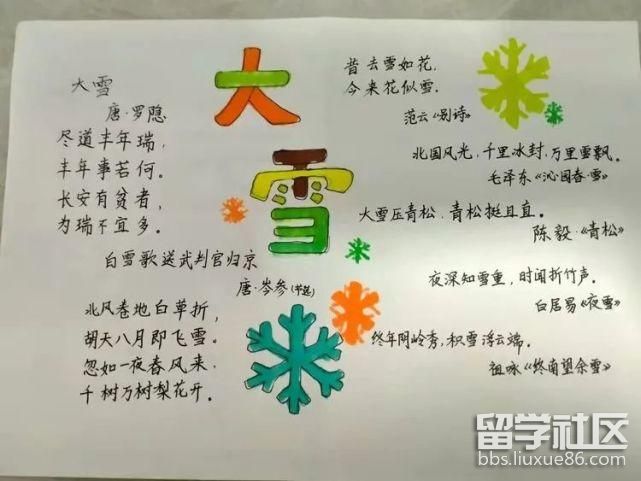 大雪
唐·罗隐
尽道丰年瑞,
丰年事若何。
长安有贫者,
为瑞不宜多。
白雪歌送武判官归京
唐·岑参(节选)
北风卷地白草折,
胡天八月即飞雪。
忽如一夜春风来,
千树万树梨花开。
大
雪
昔去雪如花,
今来花似雪。
范云《别诗》
北国风光,千里冰封,万里雪飘。
毛泽东《沁园春·雪》
大雪压青松,青松挺且直。
陈毅·《青松》
夜深知雪重,时闻折竹声。
白居易《夜雪》
终年阴岭秀,积雪浮云端。
祖咏《终南望余雪》
留学社区
bbs.liuxue86.com